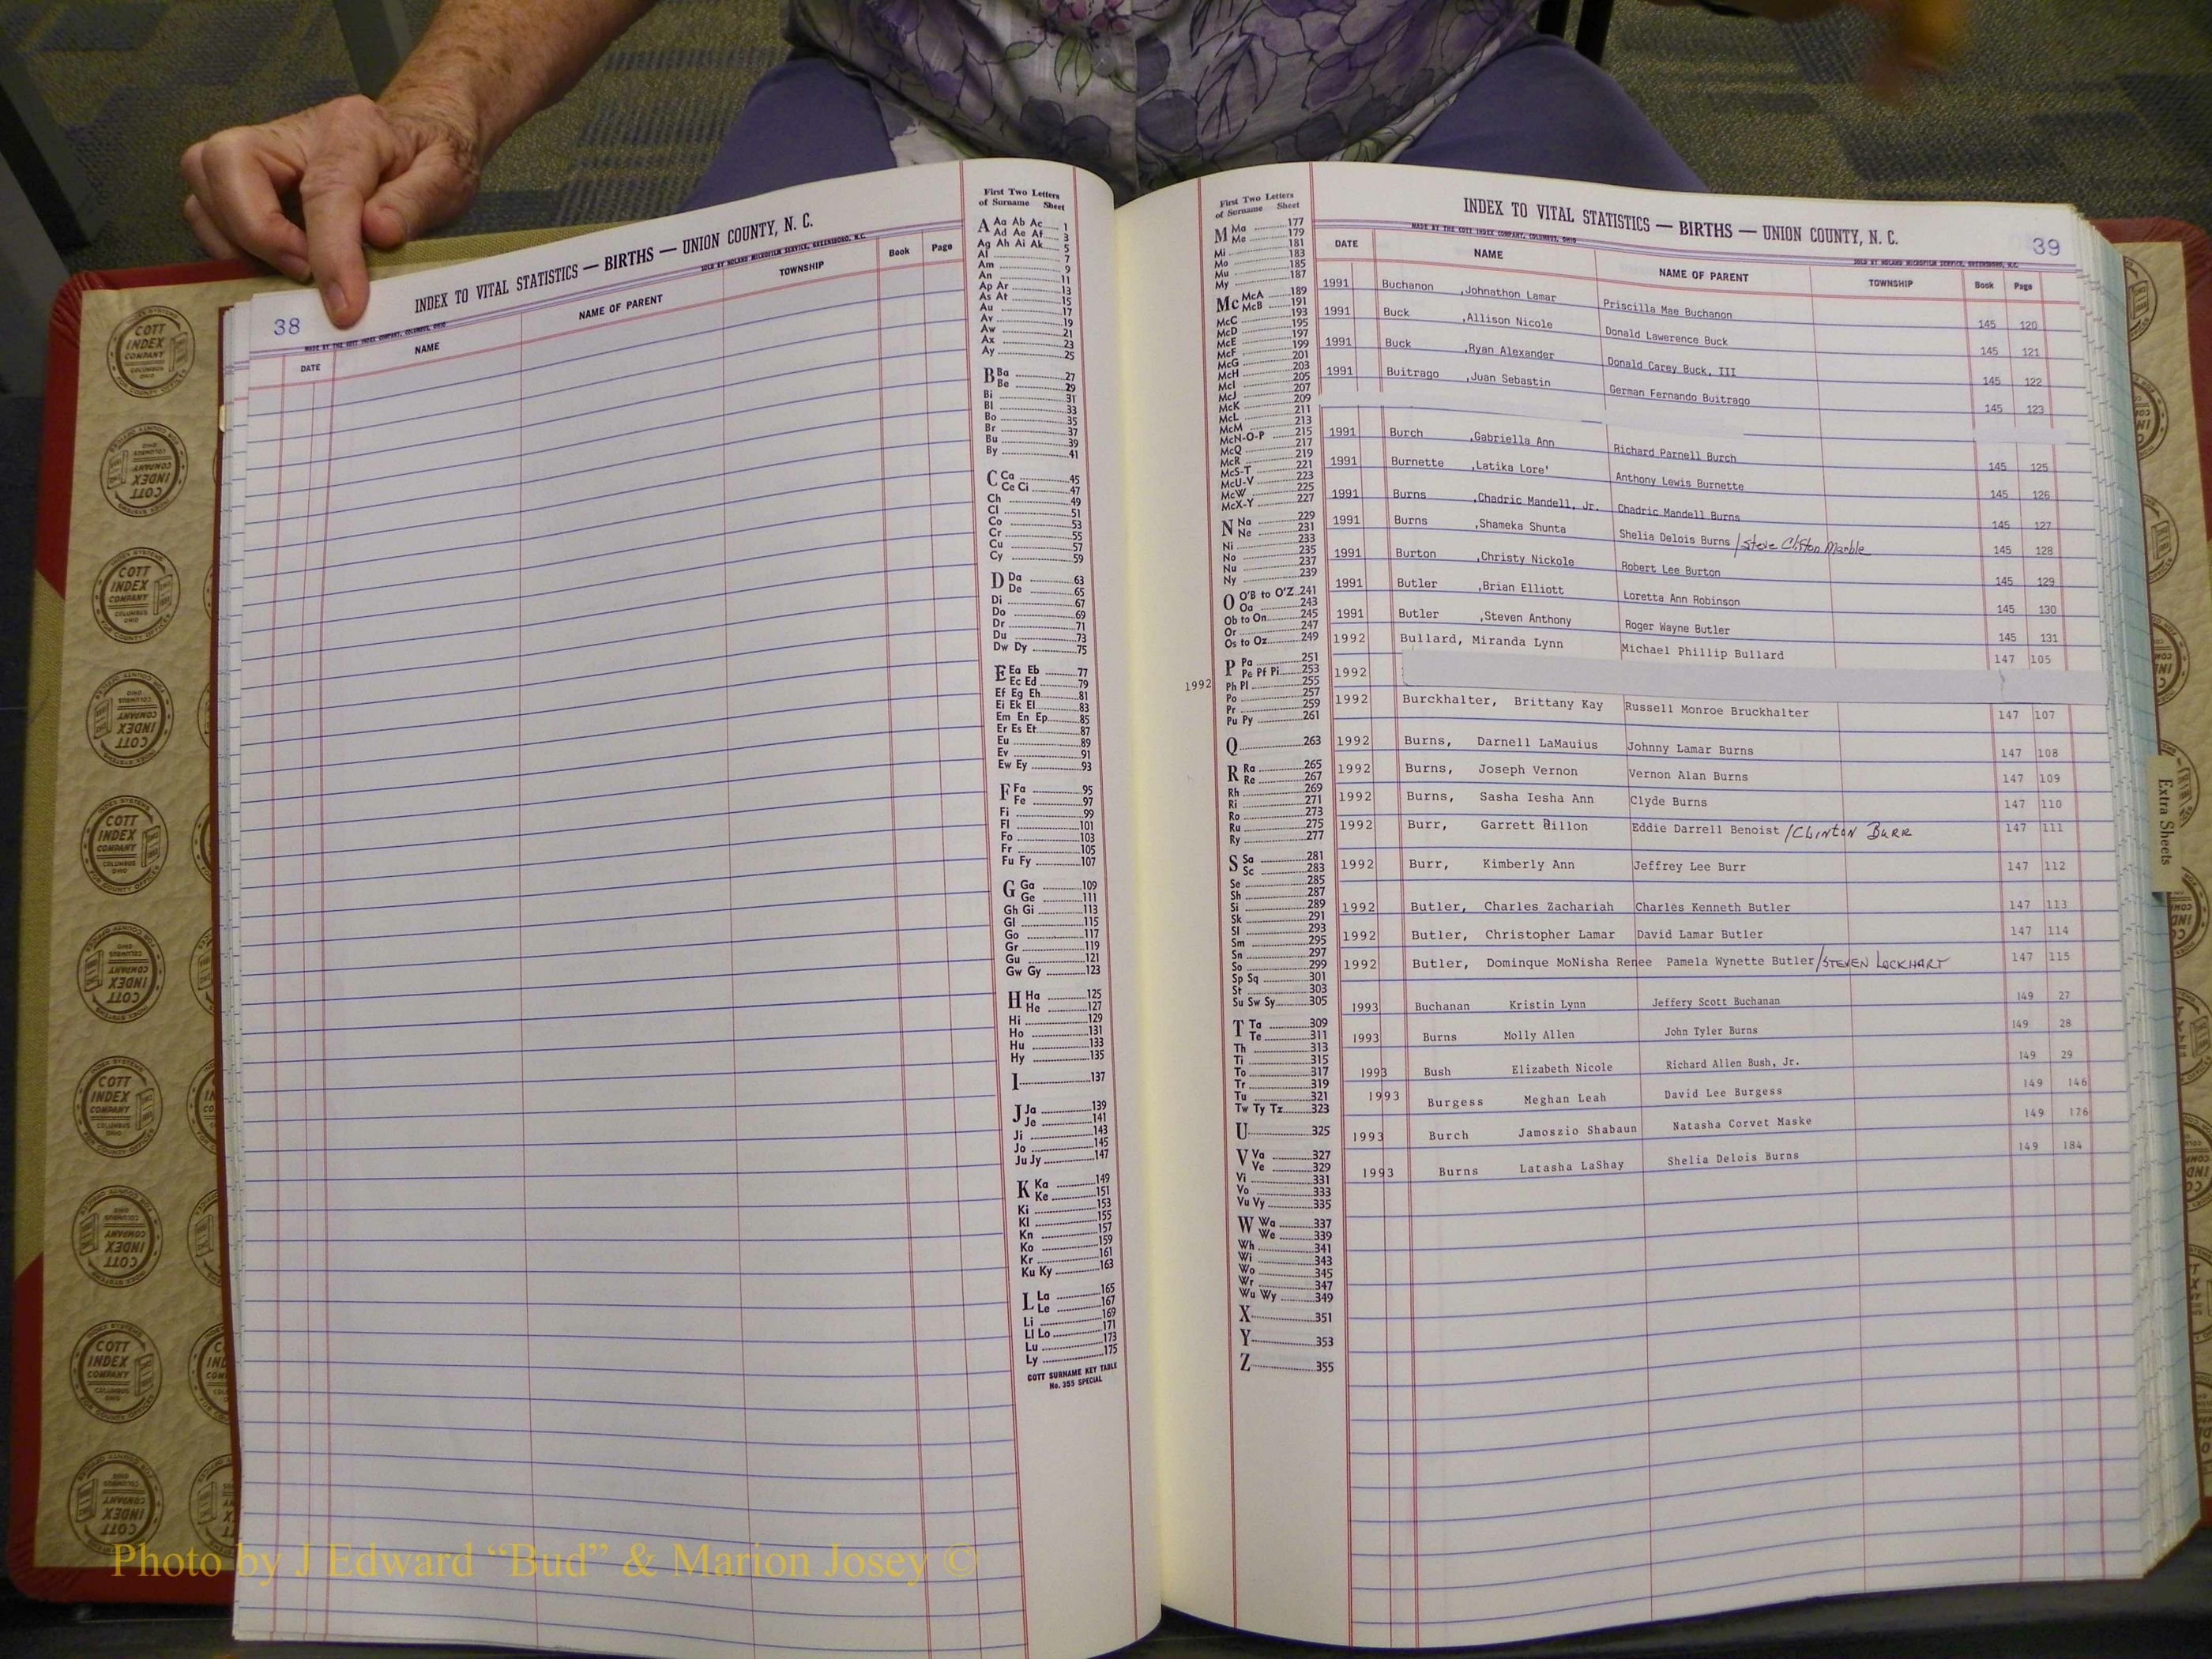 38
INDEX TO VITAL STATISTICS — BIRTHS — UNION COUNTY, N. C.
MADE BY THE COTT INDEX COMPANY, COLUMBUS, OHIO
SOLD BY NOLAND MICROFILM SERVICE, GREENSBORO, N.C.
DATE NAME NAME OF PARENT TOWNSHIP Book Page
First Two Letters
of Surname Sheet
A Aa Ab Ac 1
Ad Ae Af 3
Ag Ah Ai Ak 5
Al 7
Am 9
An 11
Ap Ar 13
As At 15
Au 17
Av 19
Aw 21
Ax 23
Ay 25
B Ba 27
Be 29
Bi 31
Bl 33
Bo 35
Br 37
Bu 39
By 41
C Ca 45
Ce Ci 47
Ch 49
Cl 51
Co 53
Cr 55
Cu 57
Cy 59
D Da 63
De 65
Di 67
Do 69
Dr 71
Du 73
Dw Dy 75
E Ea Eb 77
Ec Ed 79
Ef Eg Eh 81
Ei Ek El 83
Em En Ep 85
Er Es Et 87
Eu 89
Ev 91
Ew Ey 93
F Fa 95
Fe 97
Fi 99
Fl 101
Fo 103
Fr 105
Fu Fy 107
G Ga 109
Ge 111
Gh Gi 113
Gl 115
Go 117
Gr 119
Gu 121
Gw Gy 123
H Ha 125
He 127
Hi 129
Ho 131
Hu 133
Hy 135
I 137
J Ja 139
Je 141
Ji 143
Jo 145
Ju Jy 147
K Ka 149
Ke 151
Ki 153
Kl 155
Kn 157
Ko 159
Kr 161
Ku Ky 163
L La 165
Le 167
Li 169
Ll Lo 171
Lu 173
Ly 175
COTT SURNAME KEY TABLE
No. 355 SPECIAL
First Two Letters
of Surname Sheet
M Ma 177
Me 179
Mi 181
Mo 183
Mu 185
My 187
Mc McA 189
McB 191
McC 193
McD 195
McE 197
McF 199
McG 201
McH 203
McI 205
McJ 207
McK 209
McL 211
McM 213
McN-O-P 215
McQ 217
McR 219
McS-T 221
McU-V 223
McW 225
McX-Y 227
N Na 229
Ne 231
Ni 233
No 235
Nu 237
Ny 239
O O'B to O'Z 241
Oa 243
Ob to On 245
Or 247
Os to Oz 249
P Pa 251
Pe Pf Pi 253
Ph Pl 255
Po 257
Pr 259
Pu Py 261
Q 263
R Ra 265
Re 267
Rh 269
Ri 271
Ro 273
Ru 275
Ry 277
S Sa 281
Sc 283
Se 285
Sh 287
Si 289
Sk 291
Sl 293
Sm 295
Sn 297
So 299
Sp Sq 301
St 303
Su Sw Sy 305
T Ta 309
Te 311
Th 313
Ti 315
To 317
Tr 319
Tu 321
Tw Ty Tz 323
U 325
V Va 327
Ve 329
Vi 331
Vo 333
Vu Vy 335
W Wa 337
We 339
Wh 341
Wi 343
Wo 345
Wr 347
Wu Wy 349
X 351
Y 353
Z 355
INDEX TO VITAL STATISTICS — BIRTHS — UNION COUNTY, N. C.
39
MADE BY THE COTT INDEX COMPANY, COLUMBUS, OHIO
SOLD BY NOLAND MICROFILM SERVICE, GREENSBORO, N.C.
DATE NAME NAME OF PARENT TOWNSHIP Book Page
1991 Buchanon ,Johnathon Lamar Priscilla Mae Buchanon 145 120
1991 Buck ,Allison Nicole Donald Lawerence Buck 145 121
1991 Buck ,Ryan Alexander Donald Carey Buck, III 145 122
1991 Buitrago ,Juan Sebastin German Fernando Buitrago 145 123
1991 Burch ,Gabriella Ann Richard Parnell Burch 145 125
1991 Burnette ,Latika Lore' Anthony Lewis Burnette 145 126
1991 Burns ,Chadric Mandell, Jr. Chadric Mandell Burns 145 127
1991 Burns ,Shameka Shunta Shelia Delois Burns / Steve Clifton Marble 145 128
1991 Burton ,Christy Nickole Robert Lee Burton 145 129
1991 Butler ,Brian Elliott Loretta Ann Robinson 145 130
1991 Butler ,Steven Anthony Roger Wayne Butler 145 131
1992 Bullard, Miranda Lynn Michael Phillip Bullard 147 105
1992 1992
1992 Burckhalter, Brittany Kay Russell Monroe Bruckhalter 147 107
1992 Burns, Darnell LaMauius Johnny Lamar Burns 147 108
1992 Burns, Joseph Vernon Vernon Alan Burns 147 109
1992 Burns, Sasha Iesha Ann Clyde Burns 147 110
1992 Burr, Garrett Dillon Eddie Darrell Benoist / CLINTON BURR 147 111
1992 Burr, Kimberly Ann Jeffrey Lee Burr 147 112
1992 Butler, Charles Zachariah Charles Kenneth Butler 147 113
1992 Butler, Christopher Lamar David Lamar Butler 147 114
1992 Butler, Dominque MoNisha Renee Pamela Wynette Butler / STEVEN LOCKHART 147 115
1993 Buchanan Kristin Lynn Jeffery Scott Buchanan 149 27
1993 Burns Molly Allen John Tyler Burns 149 28
1993 Bush Elizabeth Nicole Richard Allen Bush, Jr. 149 29
1993 Burgess Meghan Leah David Lee Burgess 149 146
1993 Burch Jamoszio Shabaun Natasha Corvet Maske 149 176
1993 Burns Latasha LaShay Shelia Delois Burns 149 184
Extra Sheets
INDEX SYSTEMS
COTT
INDEX
COMPANY
COLUMBUS
OHIO
FOR COUNTY OFFICES
Photo by J Edward “Bud” & Marion Josey ©